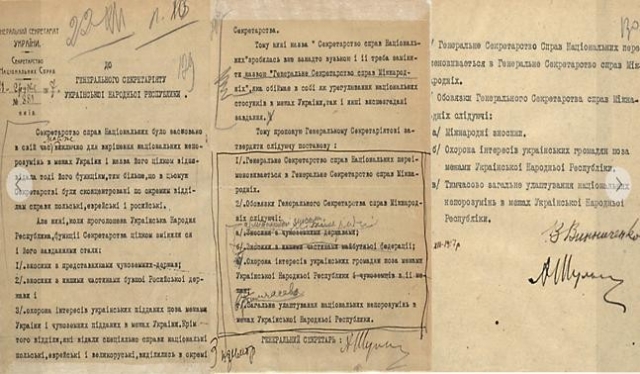 ГЕНЕРАЛЬНИЙ СЕКРЕТАРІАТ
УКРАЇНИ.
СЕКРЕТАРСТВО
НАЦІОНАЛЬНИХ СПРАВ
КИЇВ
ДО
ГЕНЕРАЛЬНОГО СЕКРЕТАРІЯТУ
УКРАЇНСЬКОЇ НАРОДНЬОЇ РЕСПУБЛИКИ.
Секретарство справ Національних було засновано
в свій час виключно для вирішення національних непо-
розумінь в межах України і назва його цілком відпові-
дала тоді його функціям, тим більше, що в цьому
Секретарстві були сконцентровані по окремим від-
ділам справи польські, єврейські і російські.
Але нині, коли проголошена Українська Народня
Республика, функції Секретарства цілком змінили ся
і його завданнями стали:
1/. зносини з представниками чужоземних держав;
2/. зносини з иншими частинами бувшої Російської дер-
жави і
3/. охорона інтересів українських підданих поза ме-
жами України і чужоземних підданих в межах України. Крім
того відділи, які відали спеціально справами національними
польські, єврейські і великоруські, виділились в окремі
Секретарства.
Тому нині назва "Секретарство справ Національ-
них" зробилась вже занадто вузькою і її треба заміни-
ти назвою "Генеральне Секретарство справ Міжнарод-
ніх", яка обіймає в собі як урегулювання національних
стосунків в межах України, так і нові вищезгадані
завдання.
Тому пропоную Генеральному Секретаріятові за-
твердити слідуючу постанову:
1/. Генеральне Секретарство справ Національних переі-
меновується в Генеральне Секретарство справ Міжна-
родніх.
2/. Обовязки Генерального Секретарства справ Міжнарод-
ніх слідуючі:
а/. Зносини з чужоземними державами;
б/. Зносини з иншими частинами майбутньої федерації;
в/. Охорона інтересів українських громадян поза межами
Української Народньої Республики й чужоземців в її ме-
жах;
г/. Загальне улаштування національних непорозумінь в
межах Української Народньої Республики.
ГЕНЕРАЛЬНИЙ СЕКРЕТАРЬ:
А Шульгин
/ Генеральне Секретарство Справ Національних пере
меновується в Генеральне Секретарство справ Між-
народніх.
/ Обовязки Генерального Секретарства справ Міжна-
родніх слідуючі:
а/ Міжнародні зносини.
б/ Охорона інтересів українських громадян поза
межами Української Народньої Республики.
в/ Тимчасово загальне улаштування національних
непорозумінь в межах Української Народньої
Республіки.
В Винниченко
А Шульгин